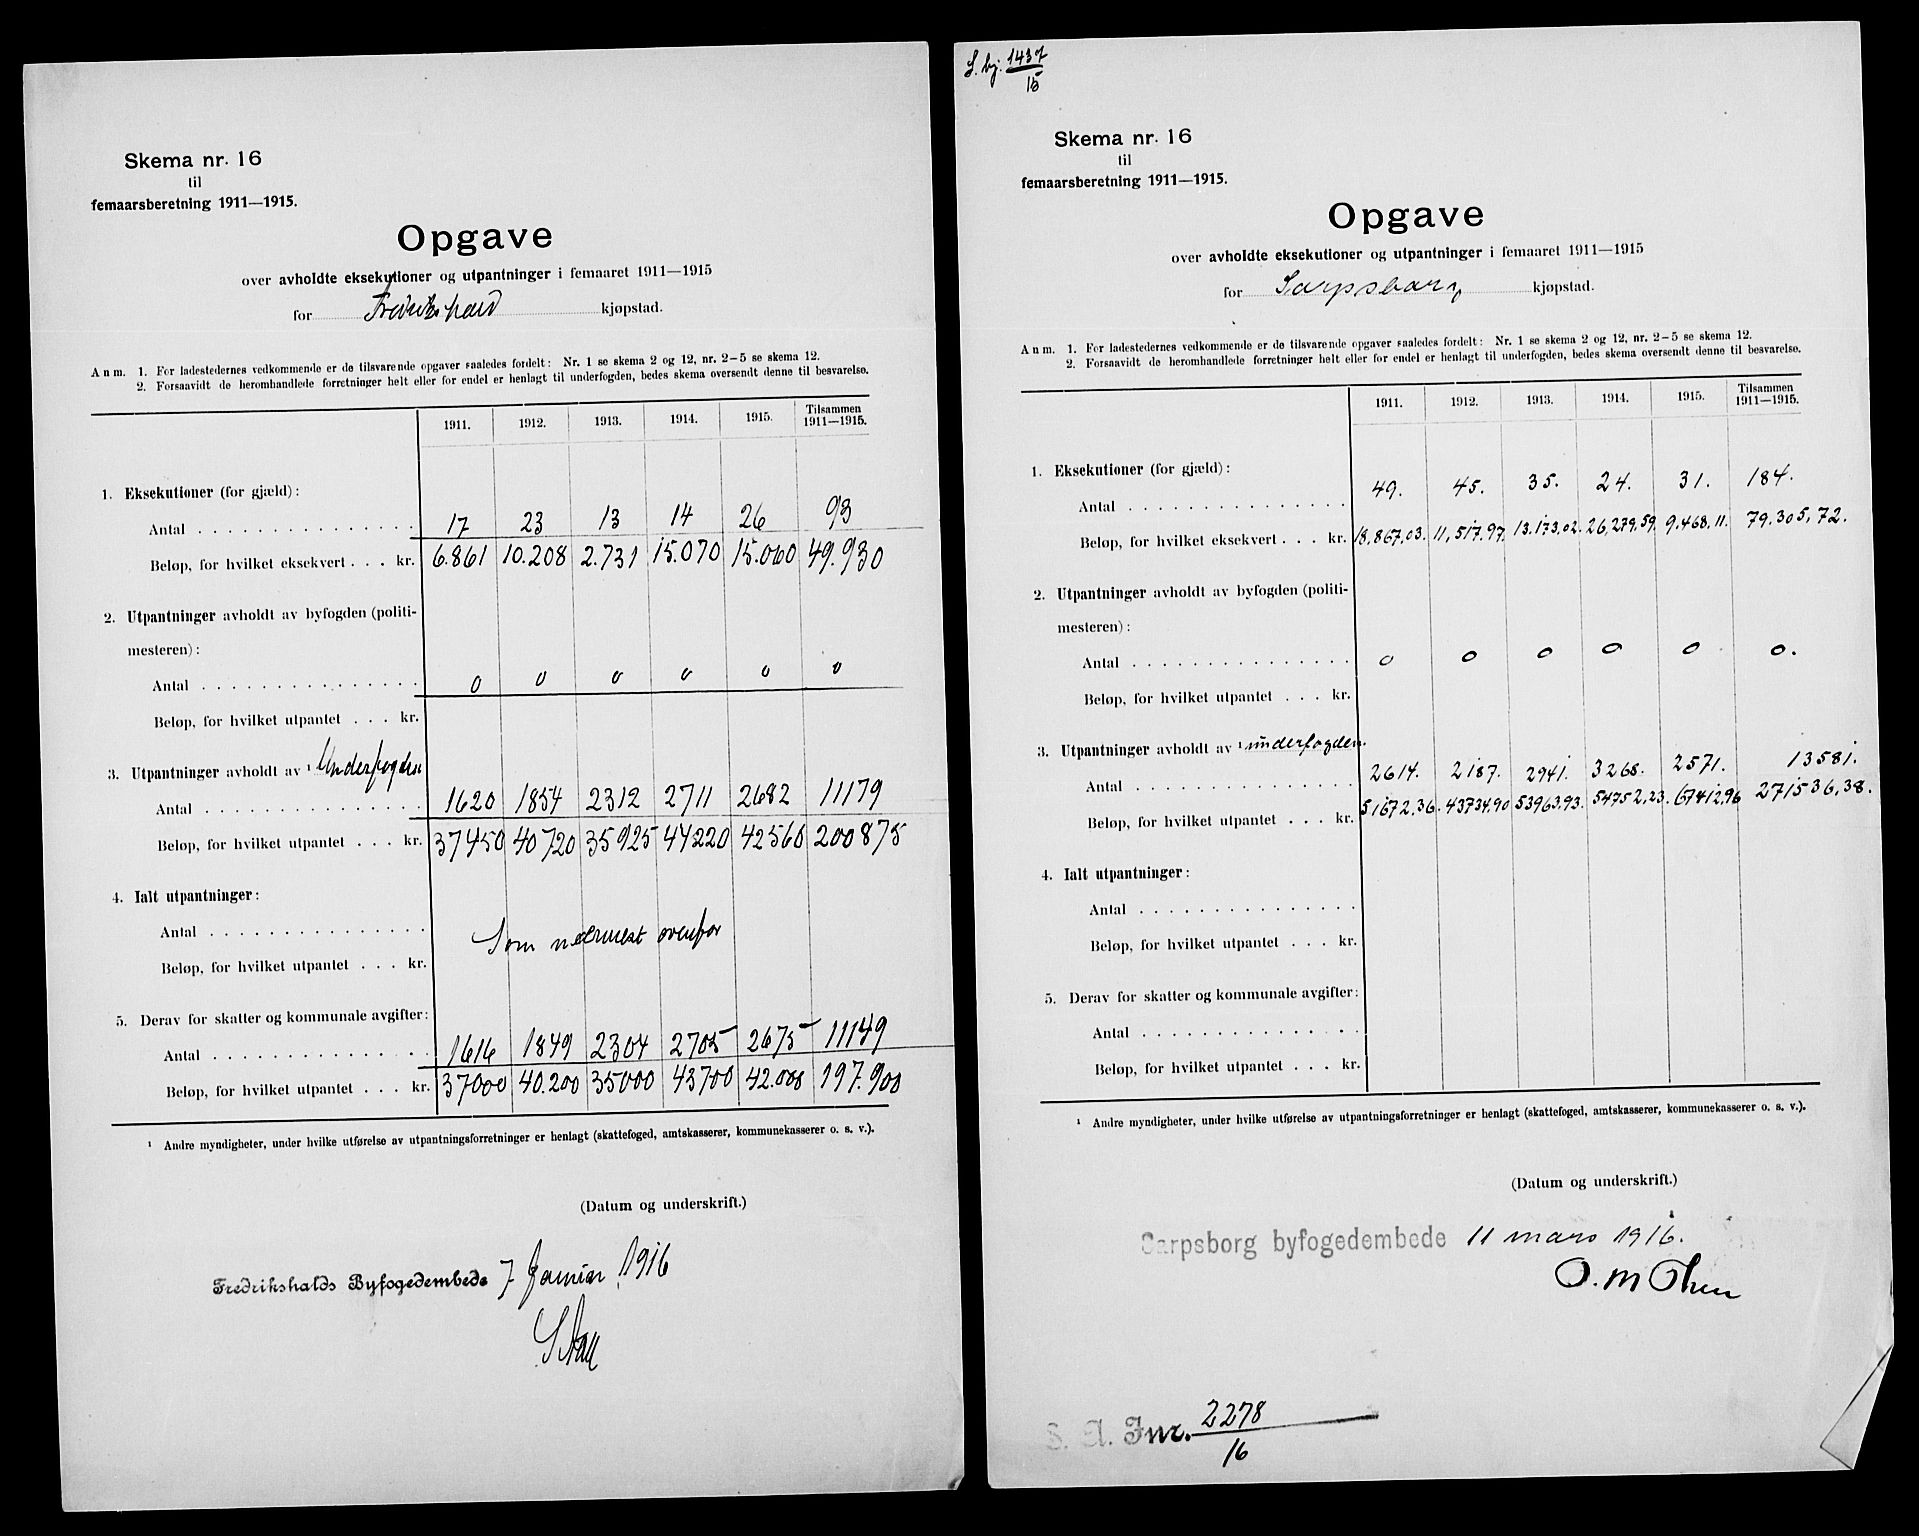 Skema nr. 16
til
femaarsberetning 1911—1915.
Opgave
over avholdte eksekutioner og utpantninger i femaaret 1911—1915
for Fredrikshald kjøpstad.
Anm. 1. For ladestedernes vedkommende er de tilsvarende opgaver saaledes fordelt: Nr. 1 se skema 2 og 12, nr. 2—5 se skema 12.
2. Forsaavidt de heromhandlede forretninger helt eller for endel er henlagt til underfogden, bedes skema oversendt denne til besvarelse.
1911. 1912. 1913. 1914. 1915. Tilsammen 1911—1915.
1. Eksekutioner (for gjæld):
Antal . . . 17 23 13 14 26 93
Beløp, for hvilket eksekvert . . . kr. 6.861 10.208 2.731 15.070 15.060 49.930
2. Utpantninger avholdt av byfogden (politi-
mesteren):
Antal . . . 0 0 0 0 0 0
Beløp, for hvilket utpantet . . . kr.
3. Utpantninger avholdt av ¹ Underfogden
Antal . . . 1620 1854 2312 2711 2682 11179
Beløp, for hvilket utpantet . . . kr. 37450 40720 35925 44220 42560 200875
4. Ialt utpantninger:
Antal . . . Som nærmest ovenfor
Beløp, for hvilket utpantet . . . kr.
5. Derav for skatter og kommunale avgifter:
Antal . . . 1616 1849 2304 2705 2675 11149
Beløp, for hvilket utpantet . . . kr. 37000 40.200 35000 43700 42.000 197.900
¹ Andre myndigheter, under hvilke utførelse av utpantningsforretninger er henlagt (skattefoged, amtskasserer, kommunekasserer o. s. v.).
(Datum og underskrift.)
Fredrikshalds Byfogedembede 7 Januar 1916
S. bj. 1437
15
Skema nr. 16
til
femaarsberetning 1911—1915.
Opgave
over avholdte eksekutioner og utpantninger i femaaret 1911—1915
for Sarpsborg kjøpstad.
Anm. 1. For ladestedernes vedkommende er de tilsvarende opgaver saaledes fordelt: Nr. 1 se skema 2 og 12, nr. 2—5 se skema 12.
2. Forsaavidt de heromhandlede forretninger helt eller for endel er henlagt til underfogden, bedes skema oversendt denne til besvarelse.
1911. 1912. 1913. 1914. 1915. Tilsammen 1911—1915.
1. Eksekutioner (for gjæld):
Antal . . . 49. 45. 35. 24. 31. 184.
Beløp, for hvilket eksekvert . . . kr. 18,867,03. 11,517,97. 13.173,02. 26,279,59. 9.468,11. 79.305,72.
2. Utpantninger avholdt av byfogden (politi-
mesteren):
Antal . . . 0 0 0 0 0 0.
Beløp, for hvilket utpantet . . . kr.
3. Utpantninger avholdt av ¹ underfogden.
Antal . . . 2614. 2187. 2941. 3268. 2571. 13581.
Beløp, for hvilket utpantet . . . kr. 51672.36. 43734.90 53963.93. 54752,23. 67412,96 271536,38.
4. Ialt utpantninger:
Antal . . .
Beløp, for hvilket utpantet . . . kr.
5. Derav for skatter og kommunale avgifter:
Antal . . .
Beløp, for hvilket utpantet . . . kr.
¹ Andre myndigheter, under hvilke utførelse av utpantningsforretninger er henlagt (skattefoged, amtskasserer, kommunekasserer o. s. v.).
(Datum og underskrift.)
Sarpsborg byfogedembede 11 mars 1916.
O. M Olsen
S. A. Jnr. 2278
16